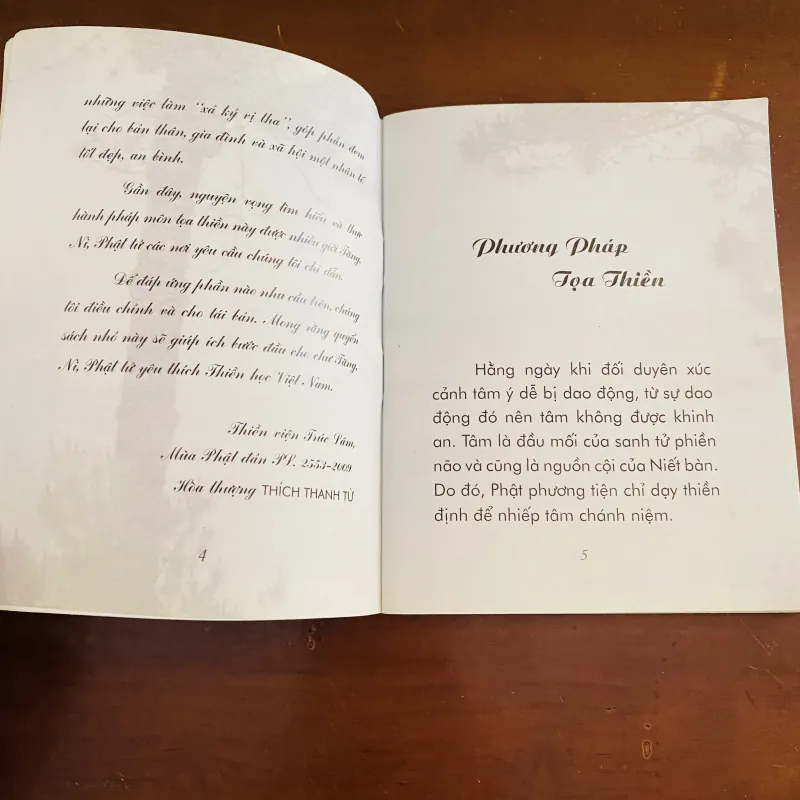 những việc làm “xả kỷ vị tha”, góp phần đem
lại cho bản thân, gia đình và xã hội một nhân tố
tốt đẹp, an bình.
Gần đây, nguyện vọng tìm hiểu và thực
hành pháp môn tọa thiền này được nhiều giới Tăng,
Ni, Phật tử các nơi yêu cầu chúng tôi chỉ dẫn.
Để đáp ứng phần nào nhu cầu trên, chúng
tôi điều chỉnh và cho tái bản. Mong rằng quyển
sách nhỏ này sẽ giúp ích bước đầu cho chư Tăng,
Ni, Phật tử yêu thích Thiền học Việt Nam.
Thiền viện Trúc Lâm,
Mùa Phật đản PL. 2553-2009
Hòa thượng THÍCH THANH TỪ
4
Phương Pháp
Tọa Thiền
Hằng ngày khi đối duyên xúc
cảnh tâm ý dễ bị dao động, từ sự dao
động đó nên tâm không được khinh
an. Tâm là đầu mối của sanh tử phiền
não và cũng là nguồn cội của Niết bàn.
Do đó, Phật phương tiện chỉ dạy thiền
định để nhiếp tâm chánh niệm.
5